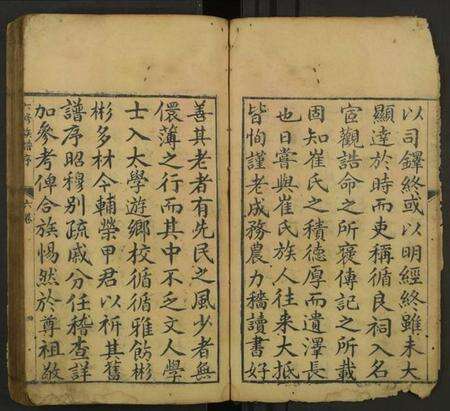 以司鐸終或以明經終雖未大
顯達於時而吏稱循良祠入名
宦觀誥命之所褒傳記之所載
固知崔氏之積德厚而遺澤長
也日嘗與崔氏族人往來大抵
皆恂謹老成務農力穡讀書好
善其老者有先民之風少者無
儇薄之行而其中不乏文人學
士入太學遊鄉校循循雅飭彬
彬多材今輔榮甲君以祈其舊
譜序昭穆別疏戚分任稽查詳
加叅考俾合族惕然於尊祖敬